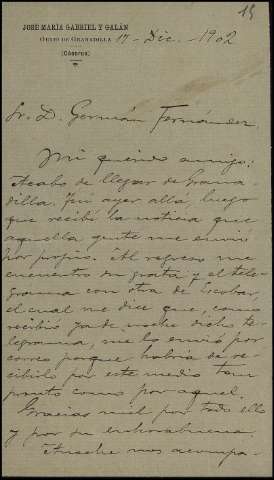 15
JOSÉ MARÍA GABRIEL Y GALÁN
GUIJO DE GRANADILLA
(CÁCERES)
17 - Dic. - 1902
Sr. D. Germán Fernández.
Mi querido amigo:
Acabo de llegar de Grana-
dilla. Fui ayer allá, luego
que recibí la noticia que
aquella gente me envió
por propio. Al regreso me
encuentro su grata y el tele-
grama con otra de Escobar,
el cual me dice que, como
recibió ya de noche dicho te-
legrama, me lo envió por
correo porque habría de re-
cibirlo por este medio tan
pronto como por aquel.
Gracias mil por todo ello
y por su enhorabuena.
Anoche nos acompa-